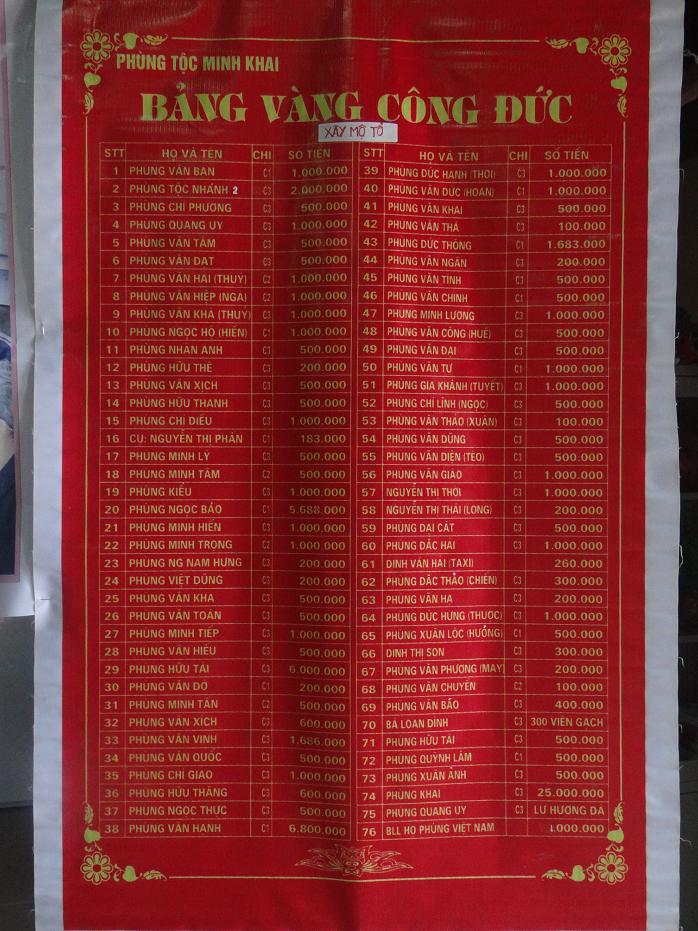 PHÙNG TỘC MINH KHAI
BẢNG VÀNG CÔNG ĐỨC
XÂY MỘ TỔ
STT HỌ VÀ TÊN CHI SỐ TIỀN
1 PHÙNG VĂN BAN C1 1.000.000
2 PHÙNG TỘC NHÁNH 2 C3 2.000.000
3 PHÙNG CHÍ PHƯƠNG C3 500.000
4 PHÙNG QUANG UY C3 1.000.000
5 PHÙNG VĂN TÂM C3 500.000
6 PHÙNG VĂN ĐẠT C3 500.000
7 PHÙNG VĂN HẢI (THUÝ) C2 1.000.000
8 PHÙNG VĂN HIỆP (NGA) C2 1.000.000
9 PHÙNG VĂN KHA (THUÝ) C3 1.000.000
10 PHÙNG NGỌC HỘ (HIỀN) C1 1.000.000
11 PHÙNG NHÂN ANH C3 500.000
12 PHÙNG HỮU THẾ C3 200.000
13 PHÙNG VĂN XỊCH C3 500.000
14 PHÙNG HỮU THANH C3 500.000
15 PHÙNG CHÍ DIỄU C3 1.000.000
16 CỤ: NGUYỄN THỊ PHÁN C1 183.000
17 PHÙNG MINH LÝ C3 500.000
18 PHÙNG MINH TÂM C2 500.000
19 PHÙNG KIỀU C3 1.000.000
20 PHÙNG NGỌC BẢO C1 5.688.000
21 PHÙNG MINH HIỂN C3 1.000.000
22 PHÙNG MINH TRỌNG C2 1.000.000
23 PHÙNG NG NAM HƯNG C3 200.000
24 PHÙNG VIỆT DŨNG C3 200.000
25 PHÙNG VĂN KHA C3 500.000
26 PHÙNG VĂN TOÀN C3 500.000
27 PHÙNG MINH TIẾP C3 1.000.000
28 PHÙNG VĂN HIẾU C3 500.000
29 PHÙNG HỮU TÀI C3 6.000.000
30 PHÙNG VĂN DỞ C1 200.000
31 PHÙNG MINH TÂN C2 500.000
32 PHÙNG VĂN XÍCH C3 600.000
33 PHÙNG VĂN VINH C3 1.686.000
34 PHÙNG VĂN QUỐC C3 500.000
35 PHÙNG CHÍ GIAO C3 1.000.000
36 PHÙNG HỮU THẮNG C3 600.000
37 PHÙNG NGỌC THỨC C3 500.000
38 PHÙNG VĂN HẠNH C1 6.800.000
STT HỌ VÀ TÊN CHI SỐ TIỀN
39 PHÙNG ĐỨC HẠNH (THƠI) C3 1.000.000
40 PHÙNG VĂN ĐỨC (HOAN) C1 1.000.000
41 PHÙNG VĂN KHẢI C3 500.000
42 PHÙNG VĂN THẢ C3 100.000
43 PHÙNG ĐỨC THÔNG C1 1.683.000
44 PHÙNG VĂN NGÂN C3 200.000
45 PHÙNG VĂN TÌNH C3 500.000
46 PHÙNG VĂN CHỈNH C1 500.000
47 PHÙNG MINH LƯỢNG C3 1.000.000
48 PHÙNG VĂN CÔNG (HUẾ) C3 500.000
49 PHÙNG VĂN ĐẠI C3 500.000
50 PHÙNG VĂN TƯ C1 1.000.000
51 PHÙNG GIA KHÁNH (TUYẾT) C3 1.000.000
52 PHÙNG CHÍ LĨNH (NGỌC) C3 500.000
53 PHÙNG VĂN THAO (XUÂN) C3 100.000
54 PHÙNG VĂN DŨNG C3 500.000
55 PHÙNG VĂN DIỆN (TÈO) C3 500.000
56 PHÙNG VĂN GIÁO C3 1.000.000
57 NGUYỄN THỊ THƠI C3 1.000.000
58 NGUYỄN THỊ THÁI (LONG) C3 200.000
59 PHÙNG ĐẠI CÁT C3 500.000
60 PHÙNG ĐẮC HẢI C3 1.000.000
61 ĐINH VĂN HẢI (TAXI) 260.000
62 PHÙNG ĐẮC THẢO (CHIẾN) C3 300.000
63 PHÙNG VĂN HẠ C3 200.000
64 PHÙNG ĐỨC HƯNG (THƯỢC) C3 1.000.000
65 PHÙNG XUÂN LỘC (HƯỜNG) C1 500.000
66 ĐINH THỊ SƠN C3 300.000
67 PHÙNG VĂN PHƯƠNG (MAY) C3 200.000
68 PHÙNG VĂN CHUYỀN C2 100.000
69 PHÙNG VĂN BẢO C3 400.000
70 BÀ LOAN ĐÌNH C3 300 VIÊN GẠCH
71 PHÙNG HỮU TÀI C3 500.000
72 PHÙNG QUỲNH LÂM C1 500.000
73 PHÙNG XUÂN ÁNH C3 500.000
74 PHÙNG KHAI C3 25.000.000
75 PHÙNG QUANG UY C3 LƯ HƯƠNG ĐÁ
76 BLL HỌ PHÙNG VIỆT NAM 1.000.000